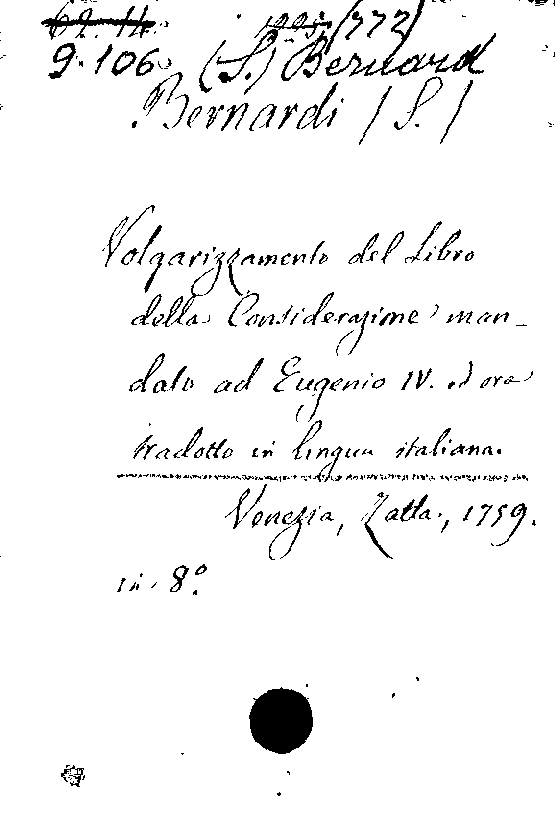 62.14. (772)
9.106 (S.) Bernard
Bernardi (S.)
Volgarizzamento del Libro
della Considerazione man-
dato ad Eugenio IV. ed ora
tradotto in lingua italiana.
Venezia, Zatta, 1759.
in 8º